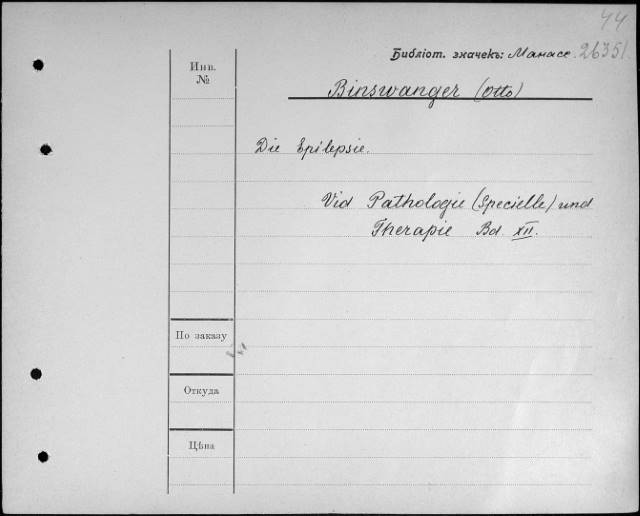 44
Библіот. значекъ: Манасс. 26351.
Инв.
№
Binswanger (Otto)
Die Epilepsie.
Vid Pathologie (Specielle) und
Therapie Bd. XII.
По заказу
Откуда
Цѣна